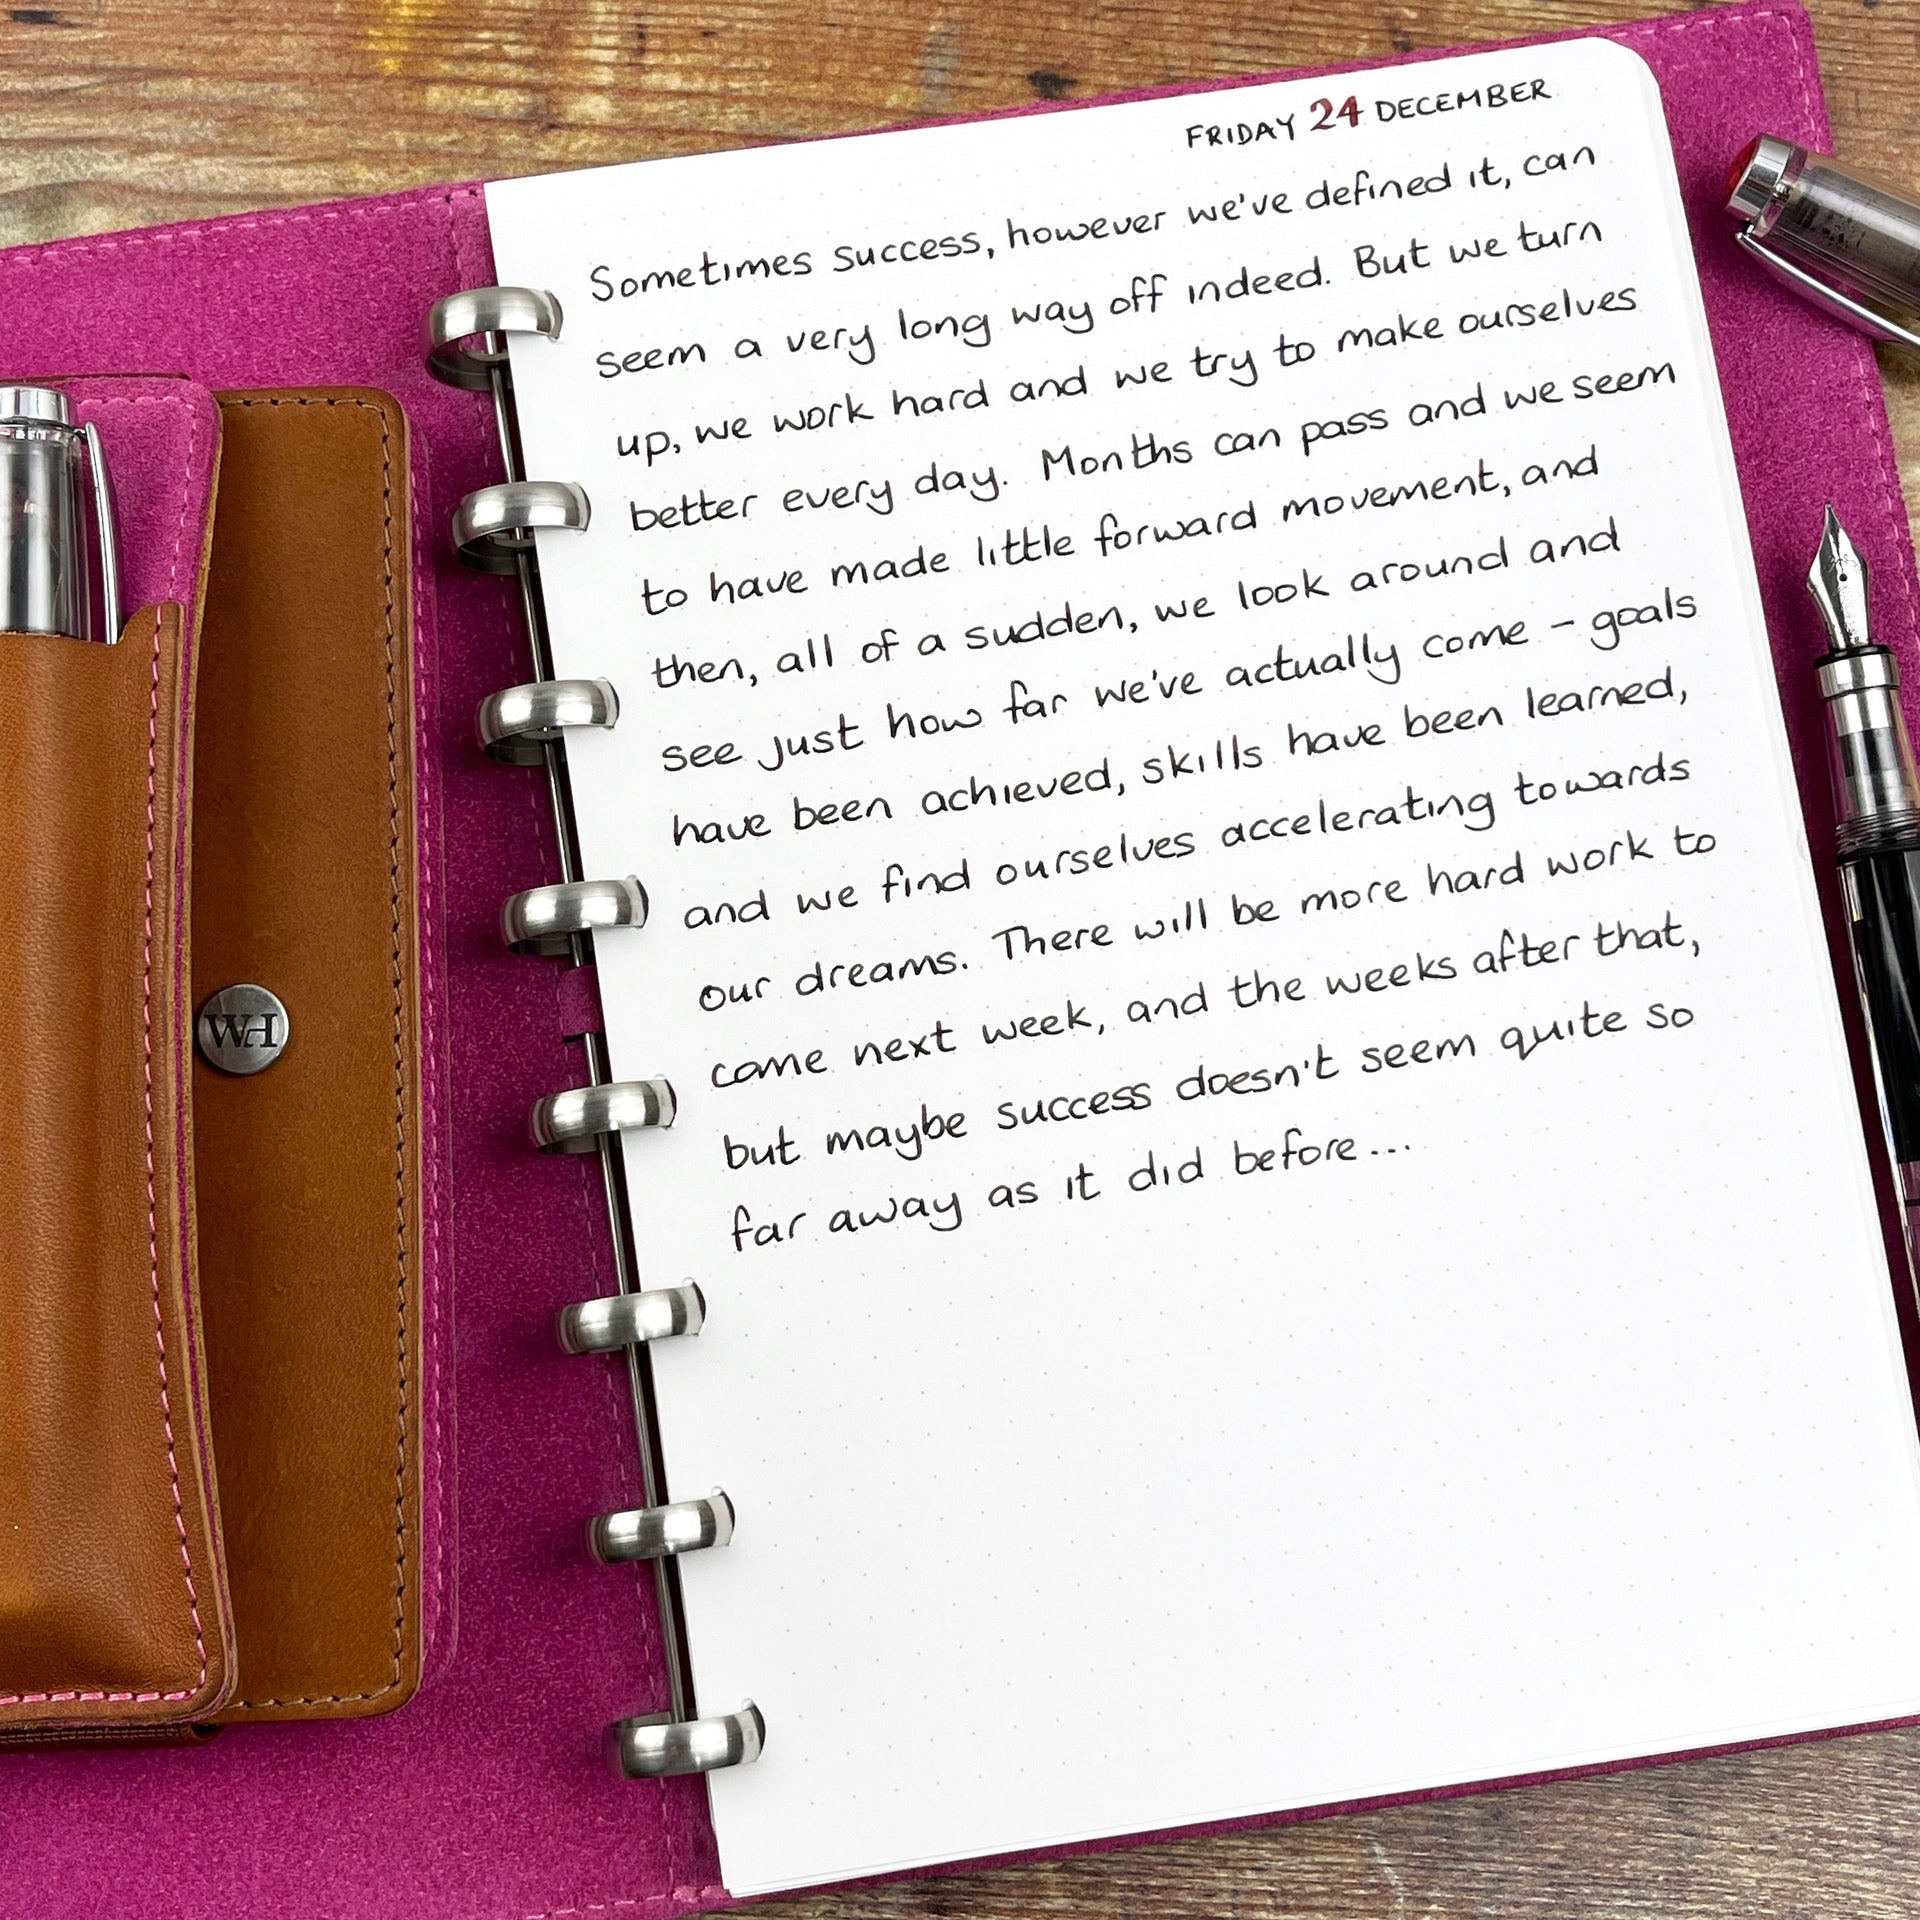 FRIDAY 24 DECEMBER
Sometimes success, however we've defined it, can
seem a very long way off indeed. But we turn
up, we work hard and we try to make ourselves
better every day. Months can pass and we seem
to have made little forward movement, and
then, all of a sudden, we look around and
see just how far we've actually come – goals
have been achieved, skills have been learned,
and we find ourselves accelerating towards
our dreams. There will be more hard work to
come next week, and the weeks after that,
but maybe success doesn't seem quite so
far away as it did before...
WH